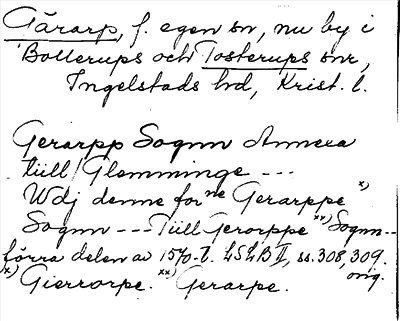 Gärarp, f. egen sn, nu by i
Bollerups och Tosterups snr,
Ingelstads hd, Krist. l.
Gerarpp Sognn Annexa
tiill Glemminge ---
Wdj denne for ne Gerarppe x)
Sognn --- Tiill Gerorppe xx) Sognn--
förra delen av 1570-t. LSLB II, ss. 308, 309.
x) Gierrorpe. xx) Gerarpe. orig.